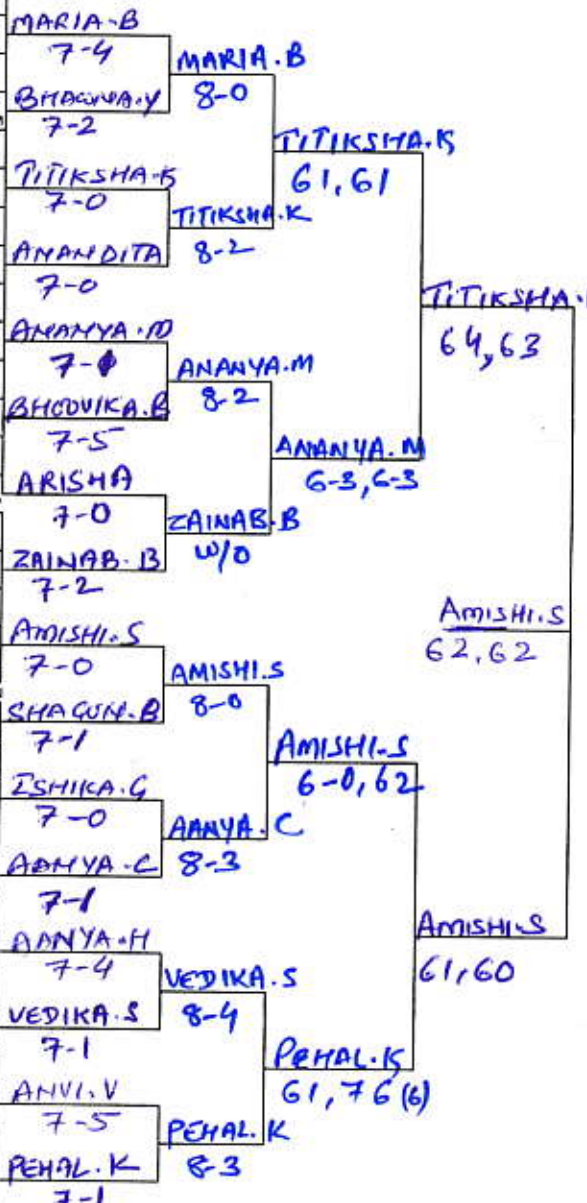 MARIA.B
7-4
BHAGVVA.Y
7-2
TITIKSHA.K
7-0
ANANDITA
7-0
ANANYA.M
7-1
BHOOVIKA.B
7-5
ARISHA
7-0
ZAINAB.B
7-2
AMISHI.S
7-0
SHAGUN.B
7-1
ISHIKA.G
7-0
AANYA.C
7-1
AANYA.H
7-4
VEDIKA.S
7-1
ANVI.V
7-5
PEHAL.K
7-1
MARIA.B
8-0
TITIKSHA.K
8-2
ANANYA.M
8-2
ZAINAB.B
W/O
AMISHI.S
8-0
AANYA.C
8-3
VEDIKA.S
8-4
PEHAL.K
8-3
TITIKSHA.K
61, 61
ANANYA.M
6-3, 6-3
AMISHI.S
6-0, 62
PEHAL.K
61, 76 (6)
TITIKSHA.
64, 63
AMISHI.S
61, 60
AMISHI.S
62, 62